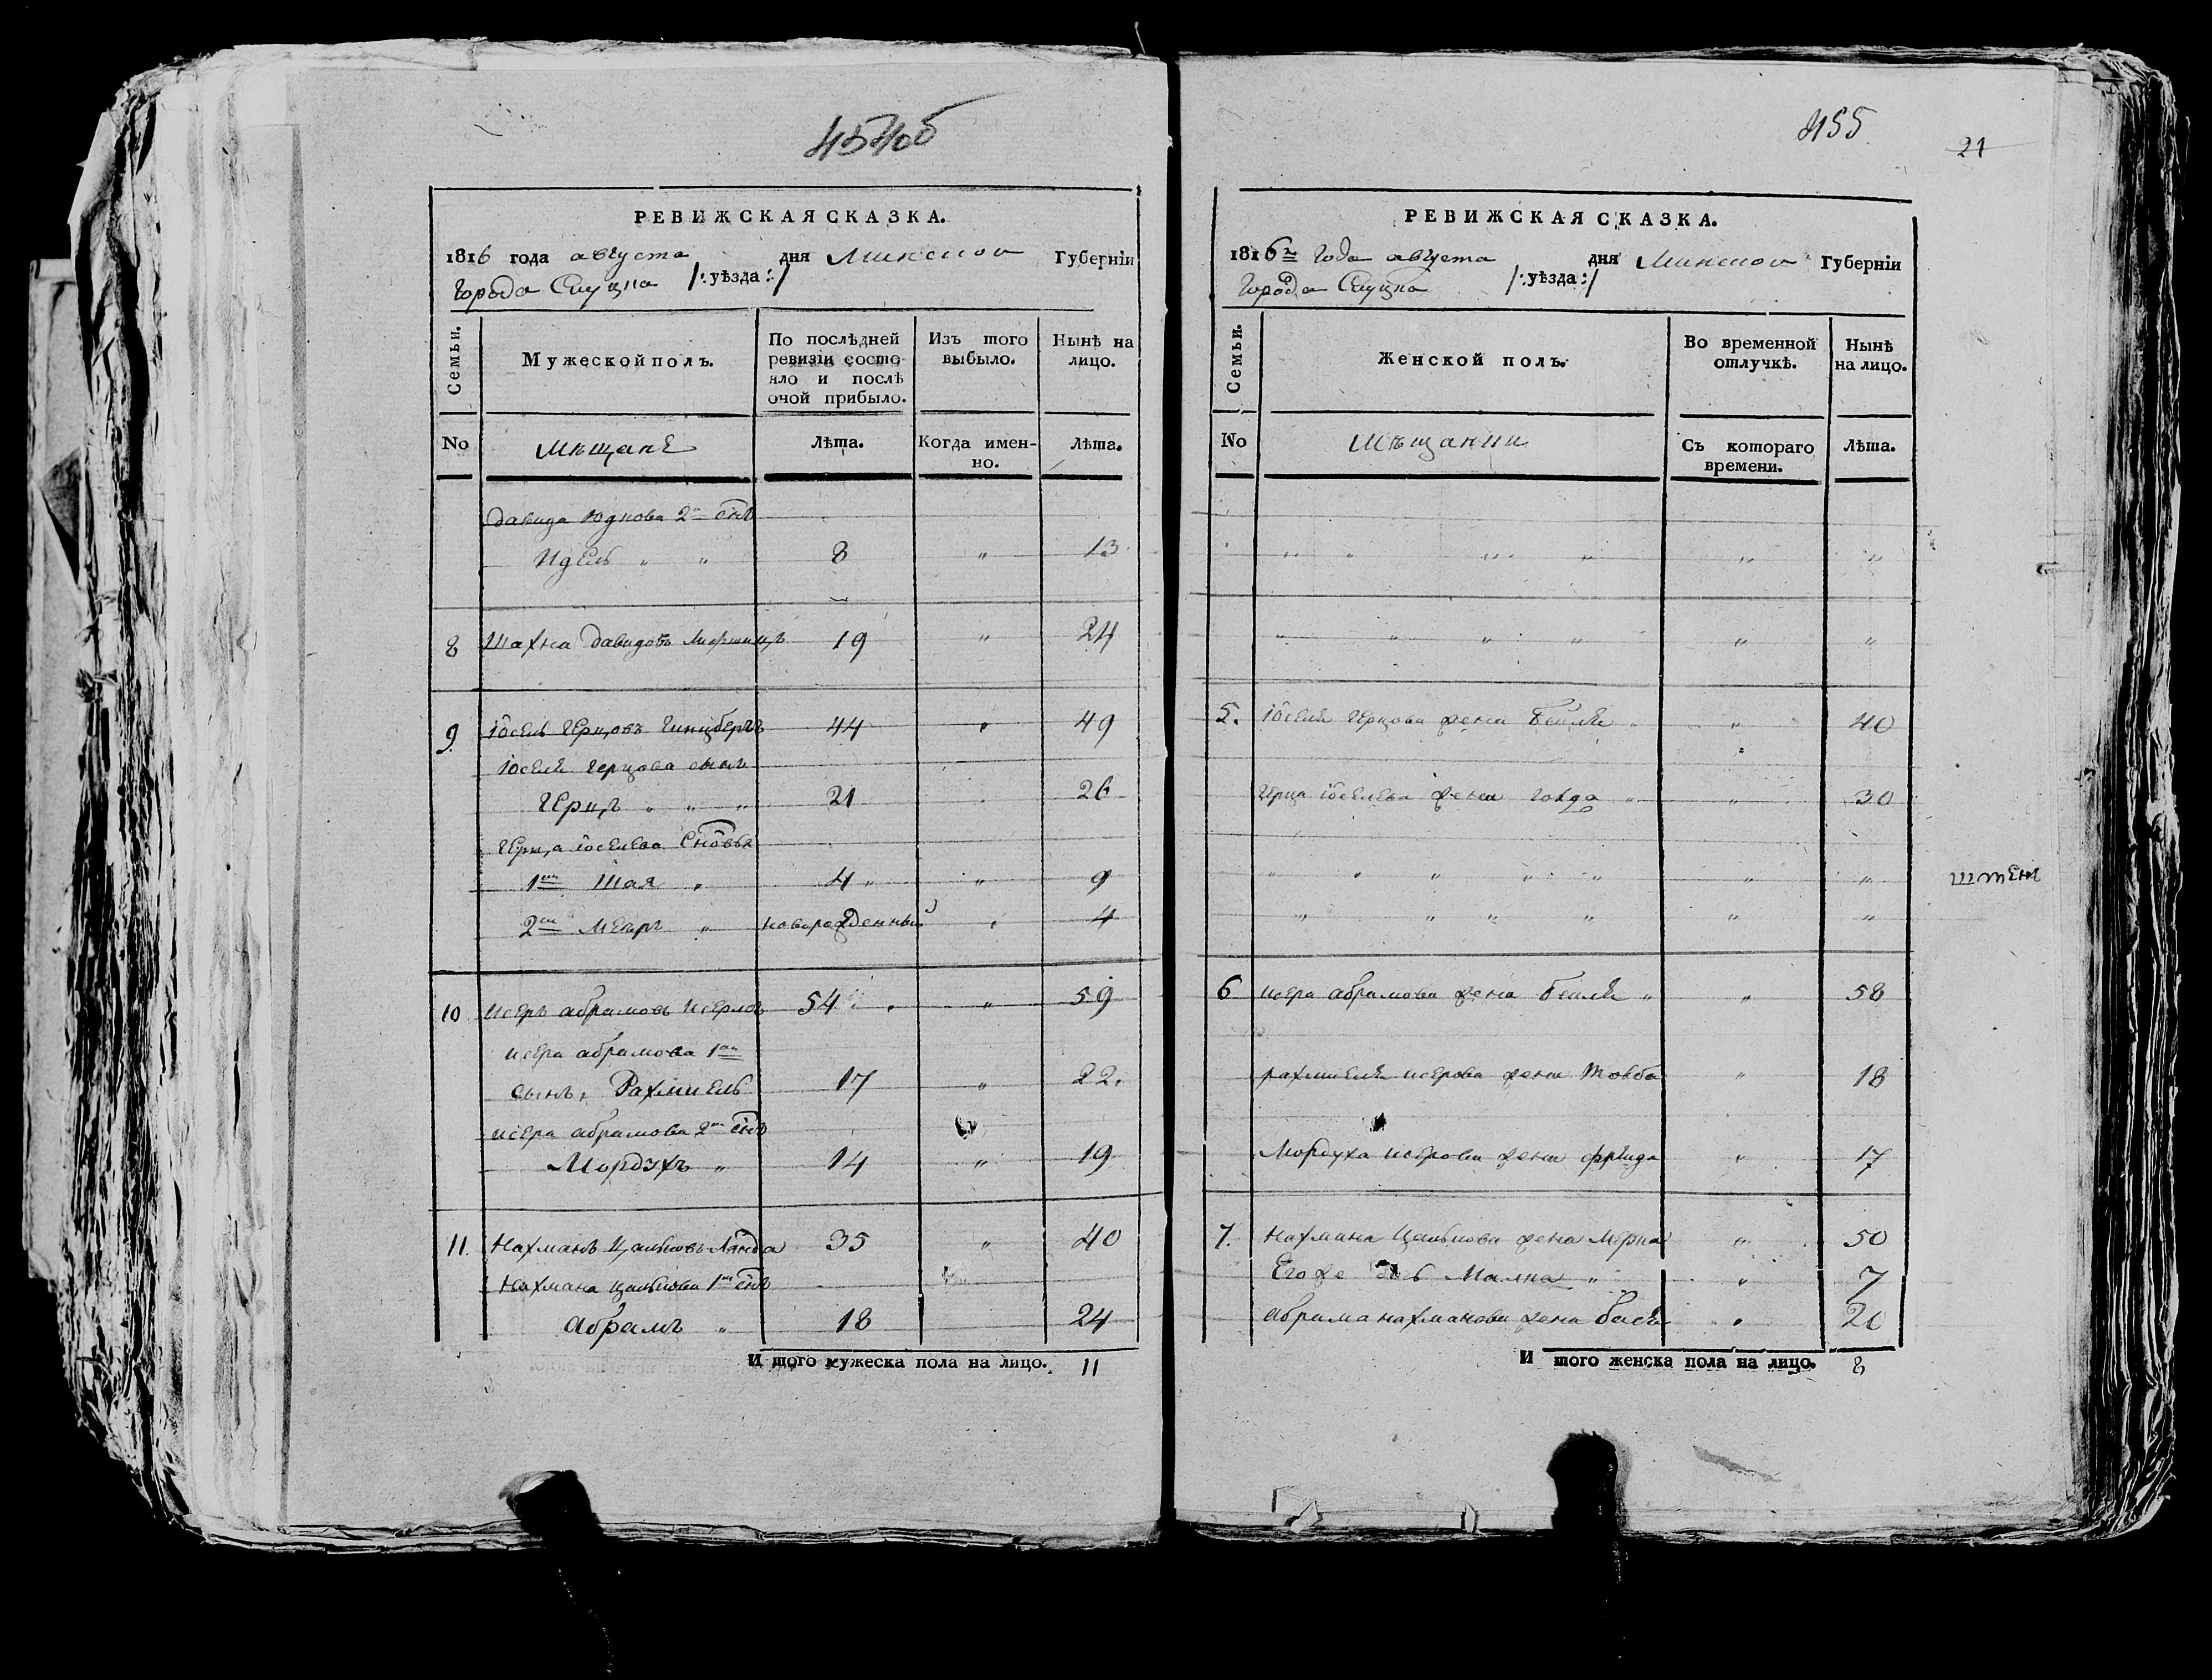 454об
РЕВИЖСКАЯ СКАЗКА.
1816 года августа дня Минской Губерніи
Города Слуцка /:уѣзда:/
Семьи.
Мужеской полъ.
По послѣдней ревизіи состояло и послѣ оной прибыло.
Изъ того выбыло.
Нынѣ на лицо.
No Мѣщане Лѣта. Когда именно. Лѣта.
Давида Юдкова 2й снъ
Идель " " 8 " 13
8 Шахна Давидовъ 19 " 24
9 Іосель Герцовъ Гинцбергъ 44 " 49
Іоселя Герцова сынъ
Герцъ " " " 21 26
Герца Іоселева Сновья
1й Шая " 4 " " 9
2й Меиръ " новорожденный " 4
10 Исеръ Абрамовъ Исерловъ 54 " " 59
Исера Абрамова 1й
сынъ, Рахмиель 17 " 22.
Исера Абрамова 2й снъ
Мордухъ " 14 " 19
11. Нахманъ Цалковъ Ланда 35 " 40
Нахмана Цалкова 1й снъ
Абрамъ " 18 24
И того мужеска пола на лицо. 11
455
21
РЕВИЖСКАЯ СКАЗКА.
1816го Года августа дня Минской Губерніи
Города Слуцка /:уѣзда:/
Семьи.
Женской полъ.
Во временной отлучкѣ.
Нынѣ на лицо.
No Мѣщанки Съ котораго времени. Лѣта.
" " " " " "
" " " " " "
5. Іоселя Герцова жена Бейля " " 40
Герца Іоселева жена Голда " " 30
" " " " " " "
" " " " " "
6 Исера Абрамова жена Бейля " " 58
Рахмиеля Исерова жена Товба " 18
Мордуха Исерова жена Фрида " 17
7. Нахмана Цалкова жена Мерка " 50
Его же дочь Малка " " 7
Абрама Нахманова жена Бася " 20
И того женска пола на лицо. 8